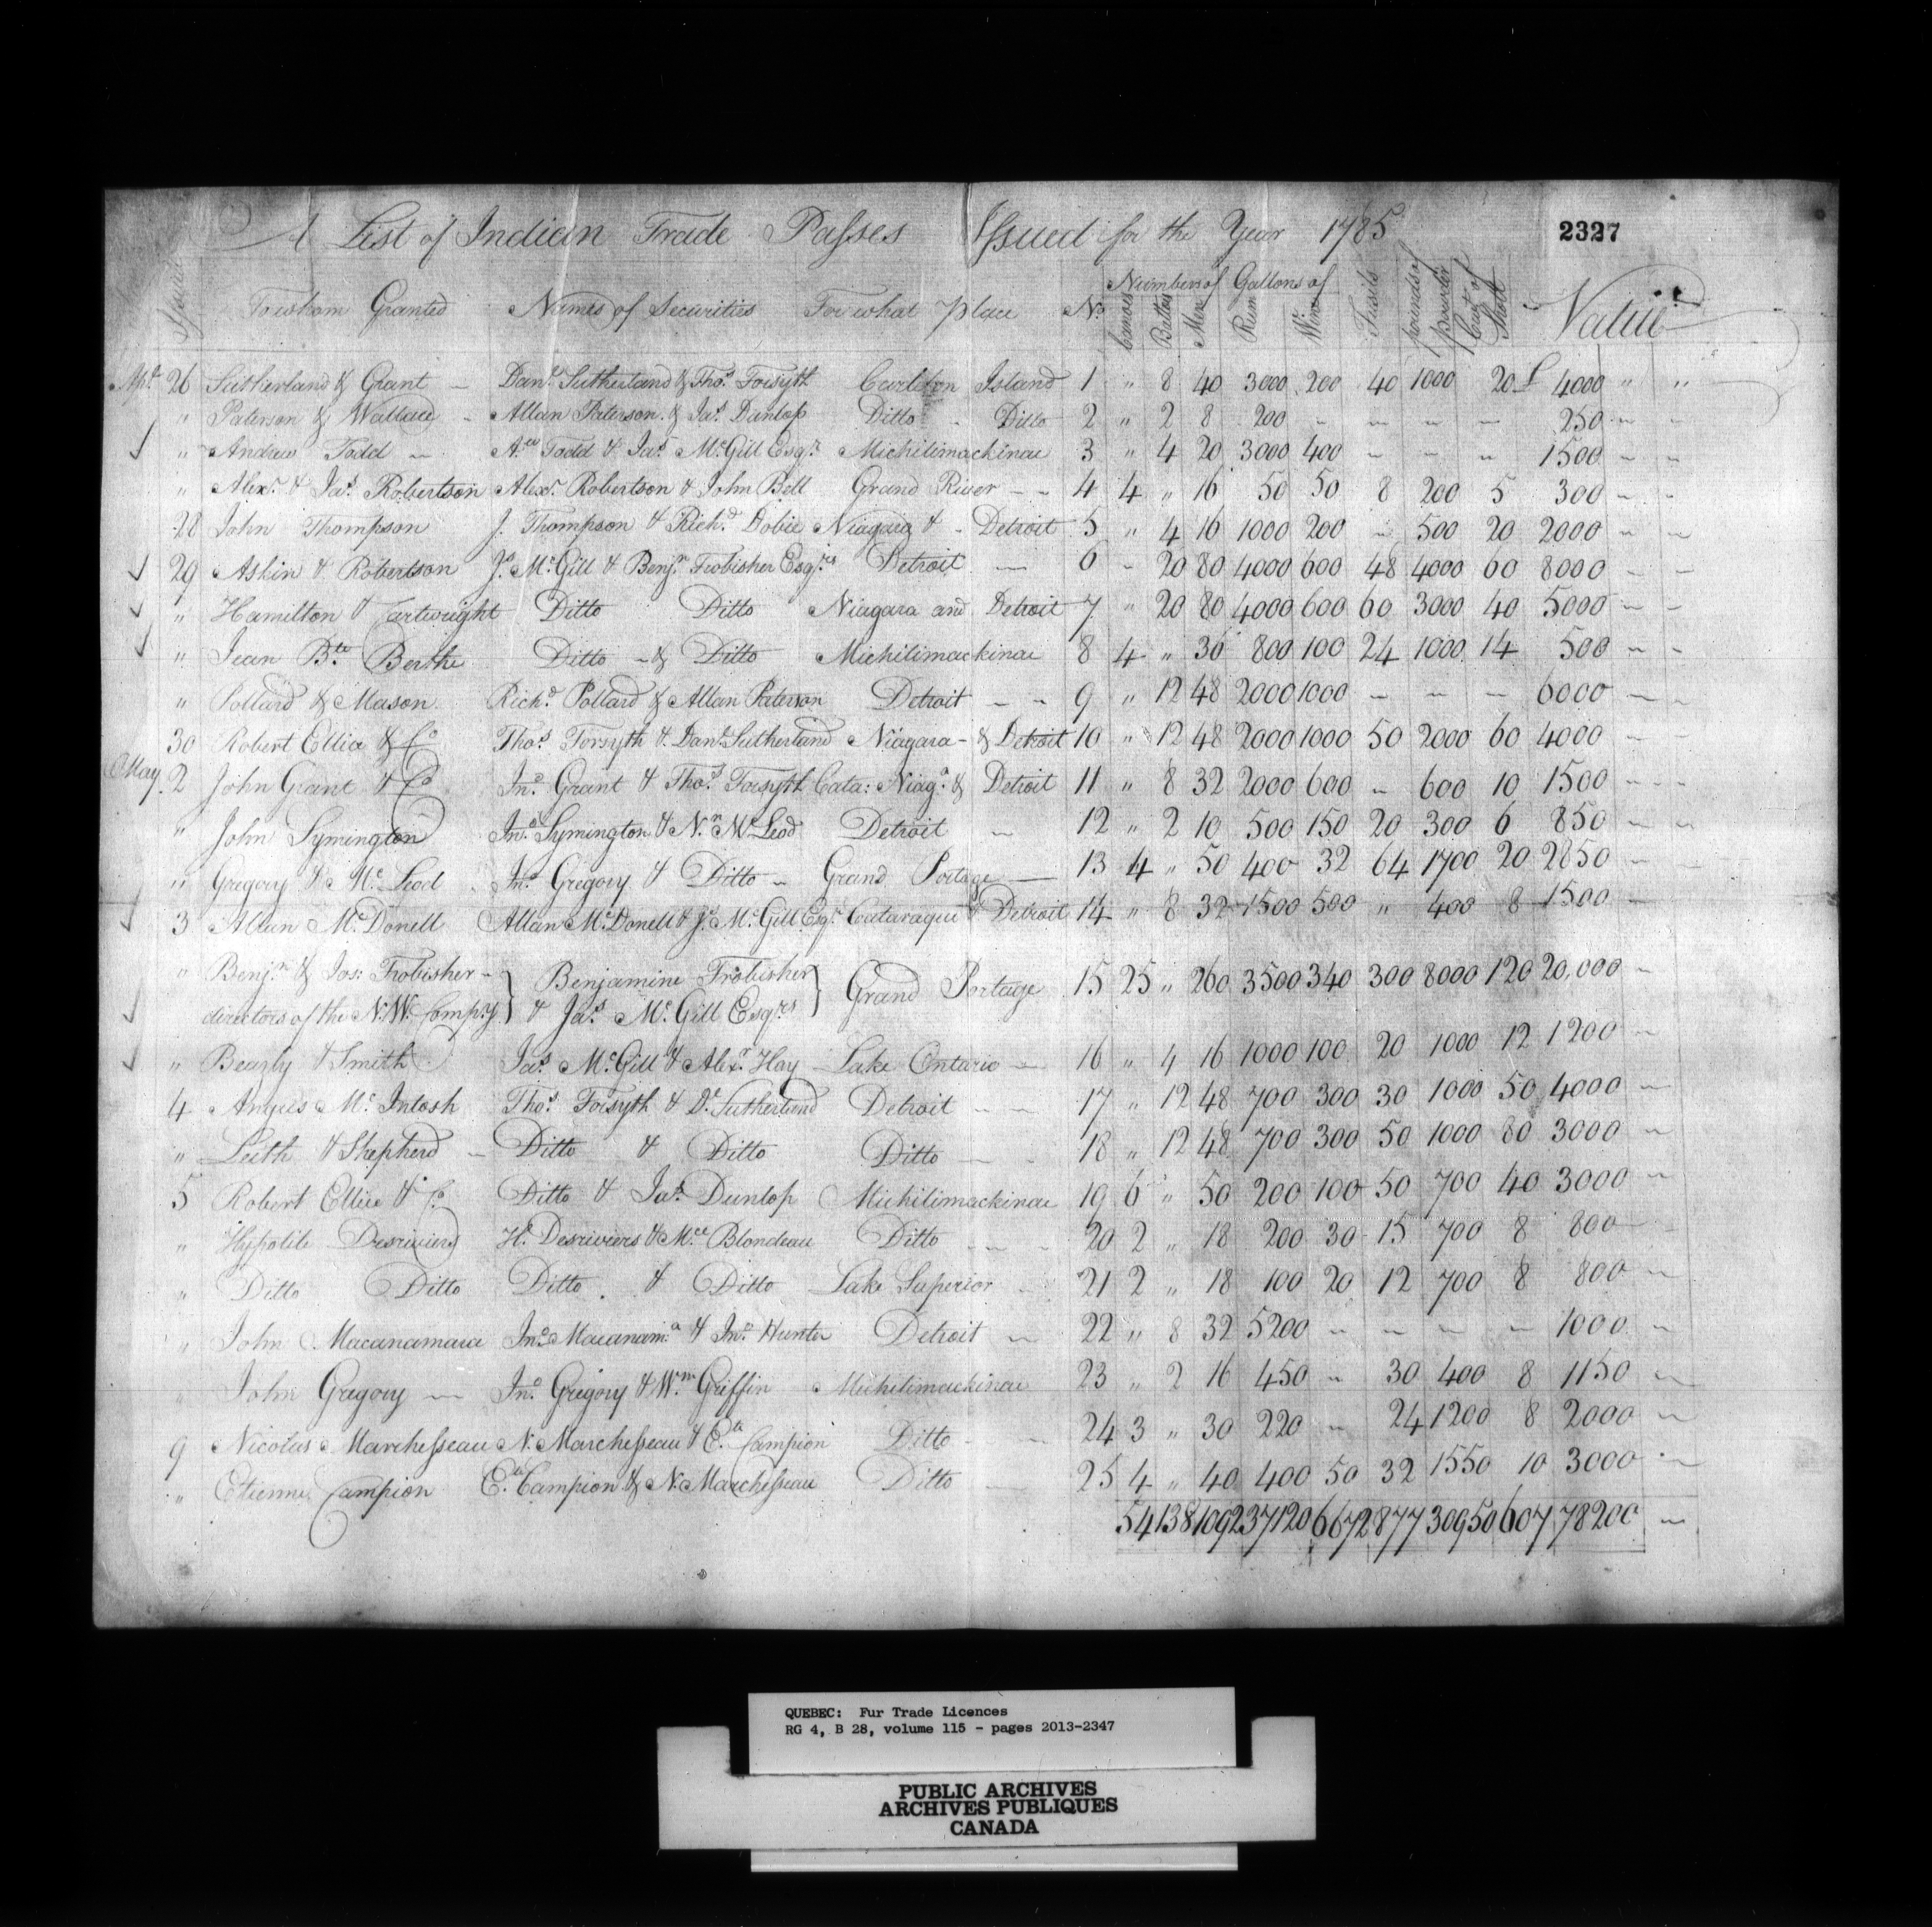 A List of Indian Trade Passes Issued for the Year 1785
2327
Numbers of Gallons of
To whom Granted Names of Securities For what place No Canoes Battos Men Rum Wine Fusils pounds of powder Cwt of Shott Value
Apl. 26 Sutherland & Grant – Danl. Sutherland & Thos. Forsyth Carleton Island 1 " 8 40 3000 200 40 1000 20 £ 4000 " "
" Paterson & Wallace – Allan Paterson & Jas. Dunlop Ditto – Ditto 2 " 2 8 200 – – – – 250 – –
" Andrew Todd – Aw. Todd & Jas. McGill Esqr. Michilimackinac 3 " 4 20 3000 400 – – – 1500 – –
" Alexr. & Jas. Robertson Alexr. Robertson & John Bell Grand River – – 4 4 " 16 50 50 8 200 5 300 – –
28 John Thompson J. Thompson & Richd. Dobie Niagara & – Detroit 5 " 4 16 1000 200 – 500 20 2000 – –
29 Askin & Robertson Js. McGill & Benjn. Frobisher Esqrs. Detroit – 6 – 20 80 4000 600 48 4000 60 8000 – –
" Hamilton & Cartwright Ditto Ditto Niagara and Detroit 7 " 20 80 4000 600 60 3000 40 5000 – –
" Jean Bte. Berthe Ditto – & Ditto Michilimackinac 8 4 " 36 800 100 24 1000 14 500 – –
" Pollard & Mason Richd. Pollard & Allan Paterson Detroit – – 9 " 12 48 2000 1000 – – – 6000 – –
30 Robert Ellice & Co Thos. Forsyth & Danl. Sutherland Niagara – & Detroit 10 " 12 48 2000 1000 50 2000 60 4000 – –
May 2 John Grant & Co Jno. Grant & Thos. Forsyth Cata: Niaga. & Detroit 11 " 8 32 2000 600 – 600 10 1500 – –
" John Symington Jno. Symington & Nn. McLeod Detroit – 12 " 2 10 500 150 20 300 6 850 – –
" Gregory & McLeod Jno. Gregory & Ditto – Grand Portage – 13 4 " 50 400 32 64 1700 20 2850 –
3 Allan McDonell Allan McDonell & Js. McGill Esqr. Cataraqui & Detroit 14 " 8 32 1500 500 " 400 8 1500 –
" Benjn. & Jos: Frobisher – } Benjamine Frobisher } Grand Portage 15 25 " 260 3500 340 300 8000 120 20,000 –
directors of the N.W. Compy } & Jas. McGill Esqrs
" Beazly & Smith Jas. McGill & Alexr. Hay Lake Ontario – 16 " 4 16 1000 100 20 1000 12 1200 –
4 Angus McIntosh Thos. Forsyth & Dl. Sutherland Detroit – – 17 " 12 48 700 300 30 1000 50 4000 –
" Leith & Shepherd – Ditto & Ditto Ditto – 18 " 12 48 700 300 50 1000 80 3000 –
5 Robert Ellice & Co. Ditto & Jas. Dunlop Michilimackinac 19 6 " 50 200 100 50 700 40 3000 –
" Hypolite Desriviers He. Desriviers & Mce Blondeau Ditto – – 20 2 " 18 200 30 15 700 8 800 –
" Ditto Ditto Ditto & Ditto Lake Superior 21 2 " 18 100 20 12 700 8 800 –
" John Macanamara Jno. Macanama. & Jno. Hunter Detroit – 22 " 8 32 5200 – – – – 1000 –
" John Gregory – Jno. Gregory & Wm. Griffin Michilimackinac 23 " 2 16 450 – 30 400 8 1150 –
9 Nicolas Marchesseau N. Marchesseau & Ete. Campion Ditto – 24 3 " 30 220 – 24 1200 8 2000 –
" Etienne Campion Ete. Campion & N. Marchesseau Ditto 25 4 " 40 400 50 32 1550 10 3000 –
54 138 1092 37120 6672 877 30950 607 78200 –
QUEBEC: Fur Trade Licences
RG 4, B 28, volume 115 - pages 2013-2347
PUBLIC ARCHIVES
ARCHIVES PUBLIQUES
CANADA